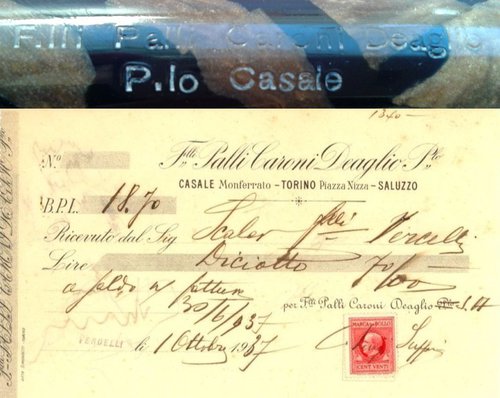 F.lli Palli Caroni Deaglio
P.lo Casale
1340-
N.o
F.lli Palli Caroni Deaglio P.lo
CASALE Monferrato - TORINO Piazza Nizza - SALUZZO
B.P.L. 18.70
Ricevuto dal Sig Scaler f.lli Vercelli
Lire Diciotto 70/100
a saldo ns fattura
30/6/937
per F.lli Palli Caroni Deaglio P.lo
MARCA DA BOLLO
VERCELLI li 1 Ottobre 1937
CENT. VENTI